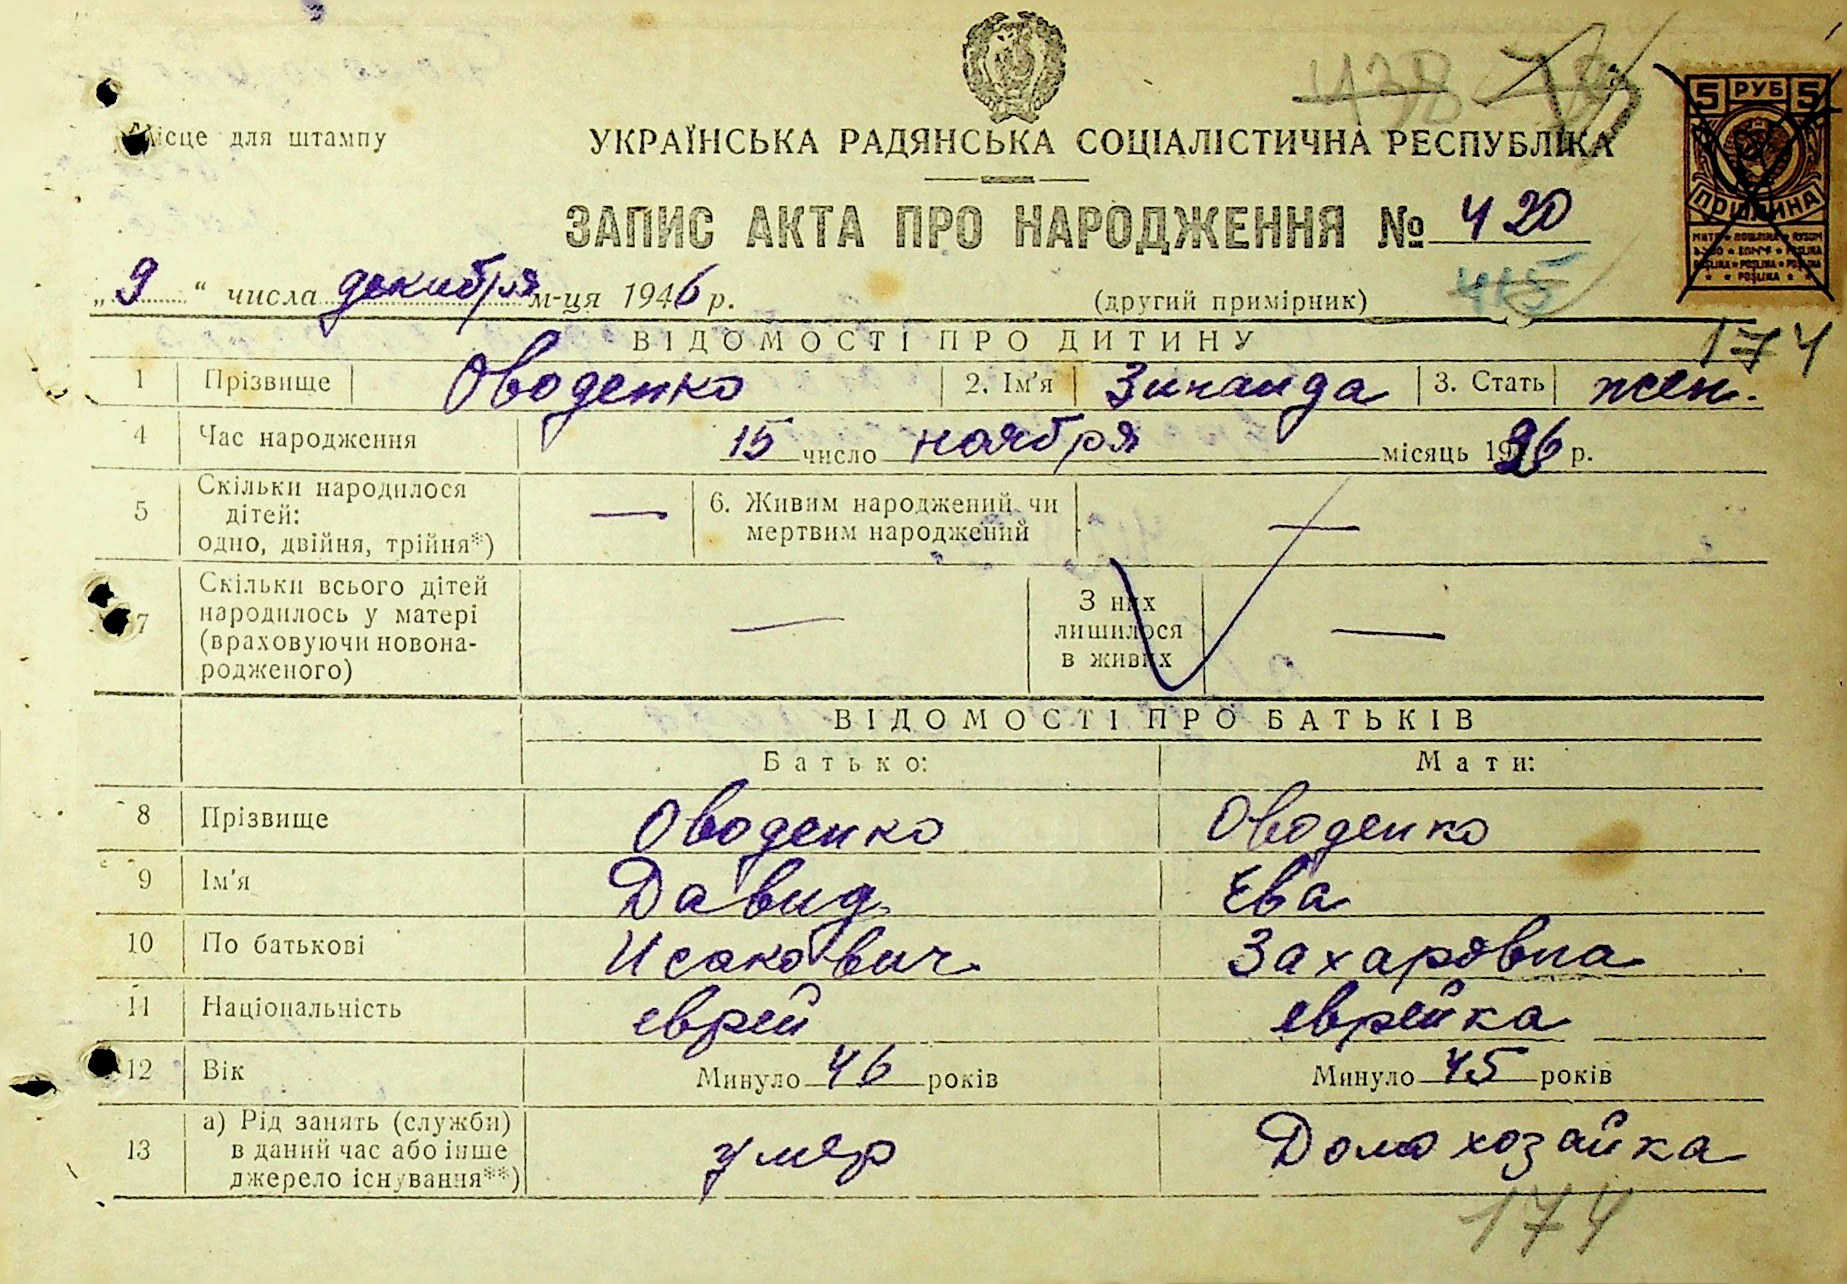 438
Місце для штампу
УКРАЇНСЬКА РАДЯНСЬКА СОЦІАЛІСТИЧНА РЕСПУБЛІКА
5 РУБ 5
ПОШЛИНА
ЗАПИС АКТА ПРО НАРОДЖЕННЯ № 420
„9“ числа декабря м-ця 1946 р. (другий примірник) 415
174
ВІДОМОСТІ ПРО ДИТИНУ
1 Прізвище Оводенко 2. Ім'я Зинаида 3. Стать жен.
4 Час народження 15 число ноября місяць 1926 р.
5 Скільки народилося
дітей:
одно, двійня, трійня*) — 6. Живим народжений чи
мертвим народжений —
7 Скільки всього дітей
народилось у матері
(враховуючи новона-
родженого) — З них
лишилося
в живих —
ВІДОМОСТІ ПРО БАТЬКІВ
Батько: Мати:
8 Прізвище Оводенко Оводенко
9 Ім'я Давид Ева
10 По батькові Исакович Захаровна
11 Національність еврей еврейка
12 Вік Минуло 46 років Минуло 45 років
13 а) Рід занять (служби)
в даний час або інше
джерело існування**) умер Домохозайка
174